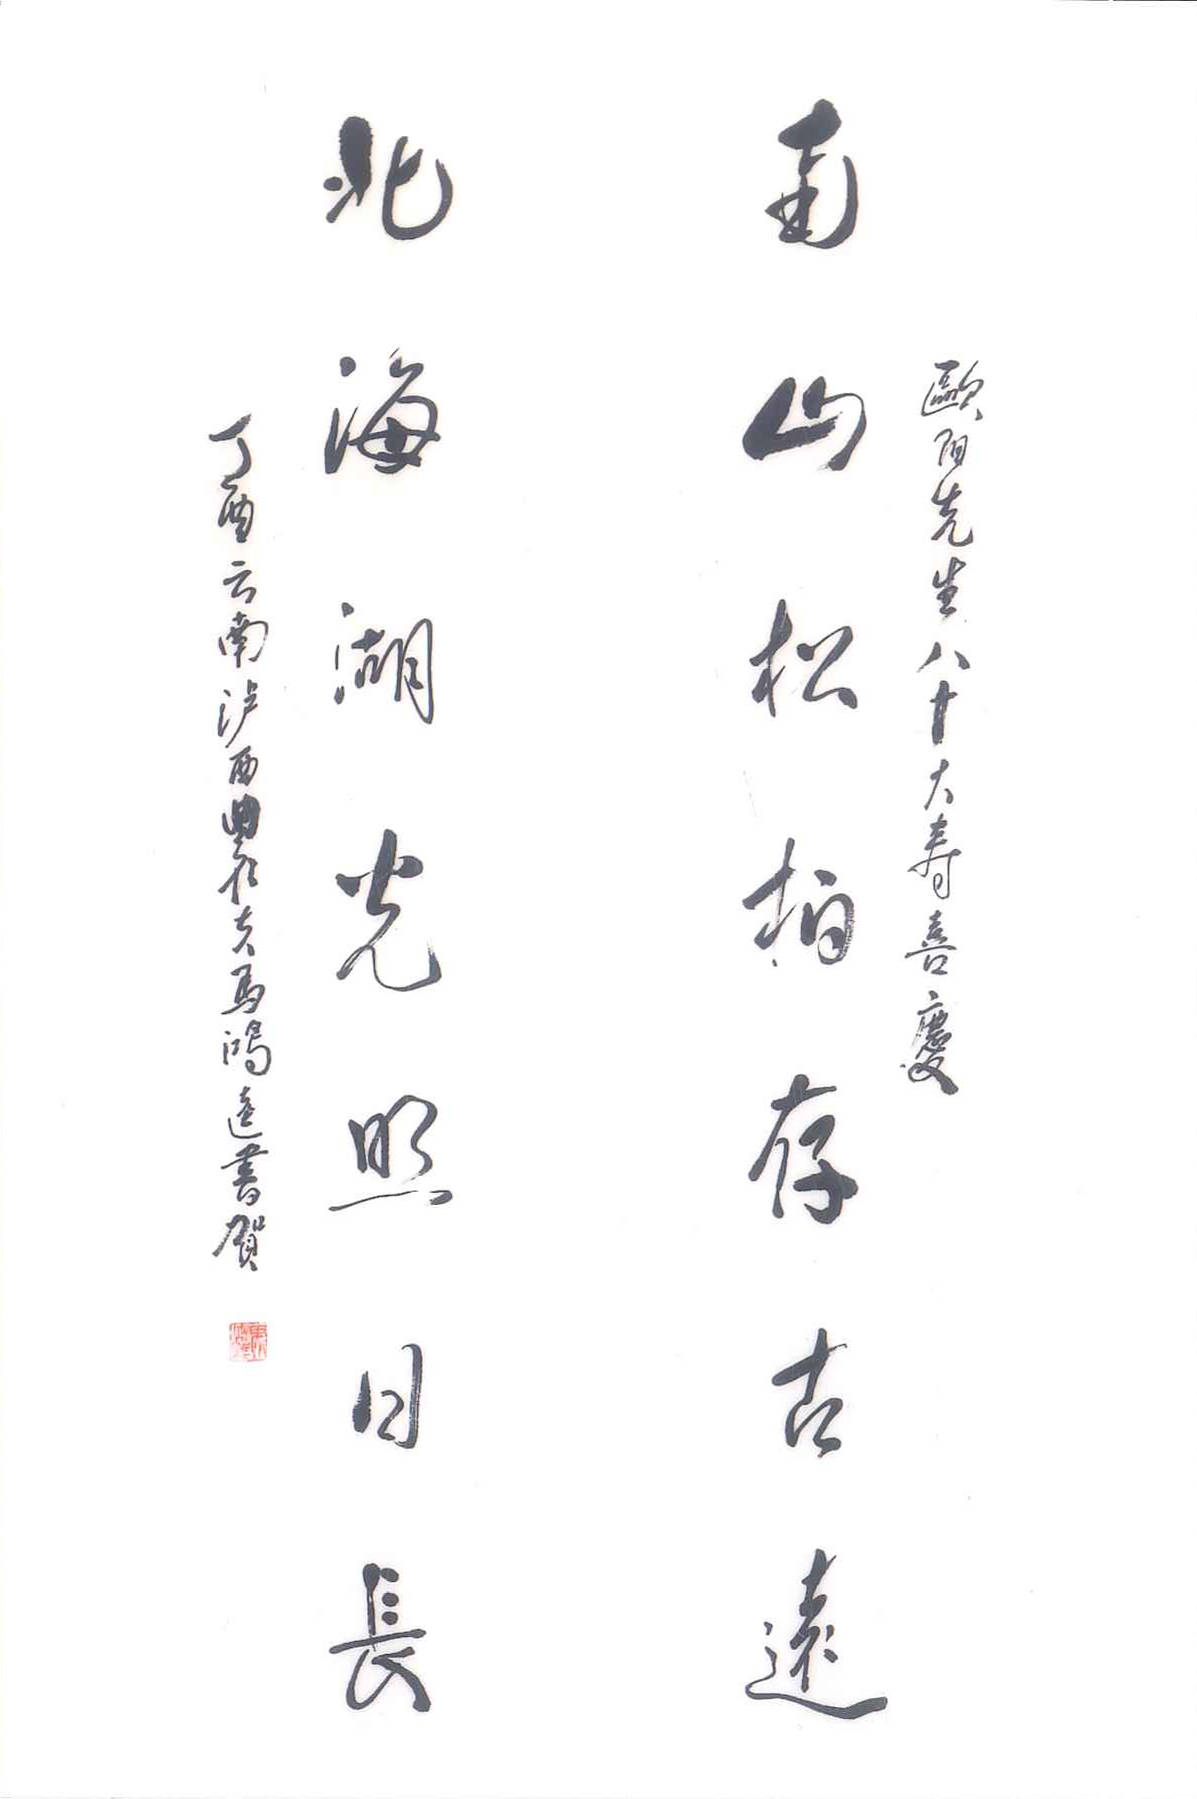 歐阳先生八十大寿喜慶
南山松柏存古遠
北海湖光照日長
丁酉云南泸西農夫馬鴻達書賀